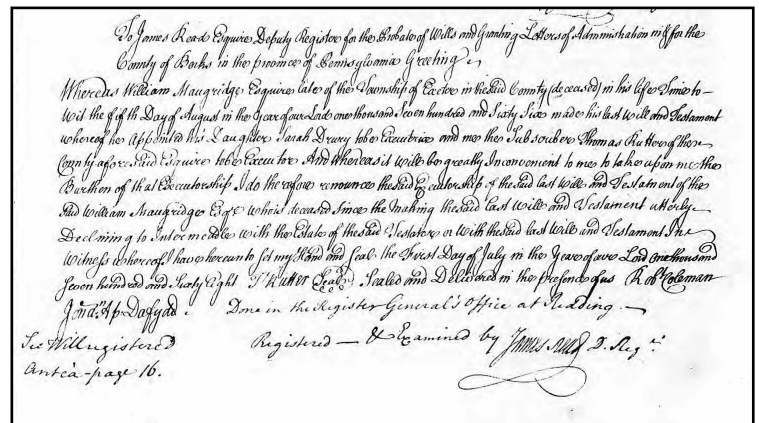 To James Read Esquire Deputy Register for the Probate of Wills and Granting Letters of Administration in & for the
County of Berks in the province of Pennsylvania Greeting
Whereas William Maugridge Esquire late of the Township of Exeter in the said County (deceased) in his life Time to-
Wit the fifth Day of August in the Year of our Lord one thousand Seven hundred and Sixty Six made his last Will and Testament
whereof he Appointed his Daughter Sarah Drury to be Executrix and me the Subscriber Thomas Rutter of the
County aforesaid Esquire to be Executor And whereas it will be greatly Inconvenient to me to take upon me the
Burthen of that Executorship I do therefore renounce the said Executorship of the said last Will and Testament of the
said William Maugridge Esqr. who is deceased since the Making the said last Will and Testament utterly
Declining to Intermeddle with the Estate of the said Testator or with the said last Will and Testament In
Witness whereof I have hereunto set my Hand and Seal the First Day of July in the Year of our Lord One thousand
seven hundred and Sixty Eight T Rutter (Seal) Sealed and Delivered in the presence of us Robt. Coleman
Jond. Ap Dafydd. Done in the Register General's Office at Reading.—
See Will registered Registered — & Examined by James Read D. Regr.
Antea - page 16.